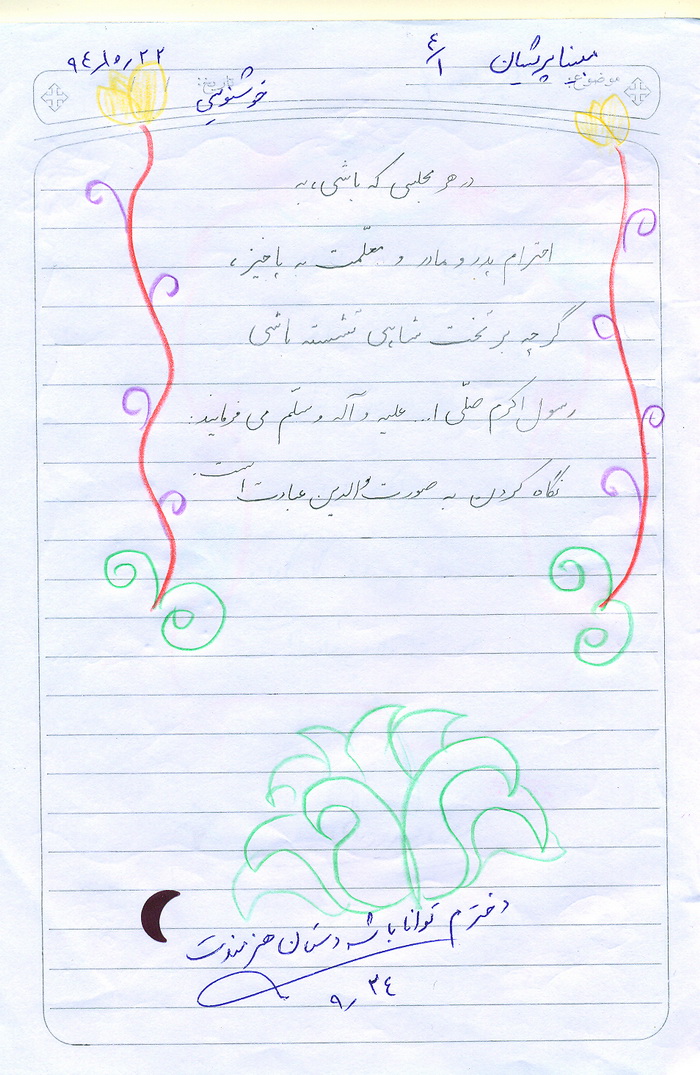 مبینا پرشیان ۴/۱ ۹۴/۱۰/۲۲
موضوع: تاریخ:
خوشنویسی
در هر مجلسی که باشی، به
احترام پدر و مادر و معلّمت به پا خیز،
گرچه بر تخت شاهی نشسته باشی
رسول اکرم صلّی ا... علیه و آله و سلّم می فرمایند:
نگاه کردن به صورت والدین عبادت است.
دخترم توانا باشه دستان هنرمندت